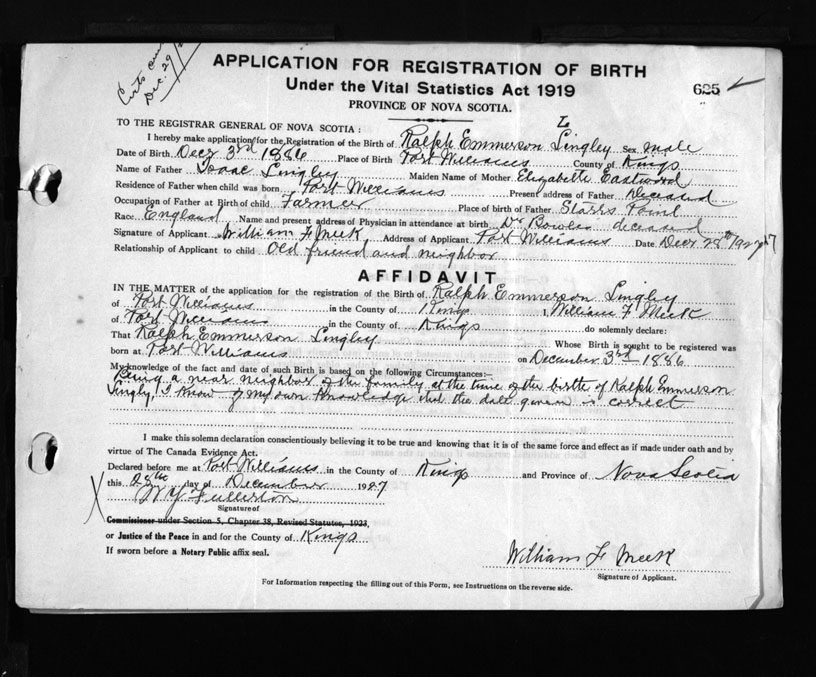 Dec. 29/
APPLICATION FOR REGISTRATION OF BIRTH
Under the Vital Statistics Act 1919
625
PROVINCE OF NOVA SCOTIA.
L
TO THE REGISTRAR GENERAL OF NOVA SCOTIA :
I hereby make application for the Registration of the Birth of Ralph Emmerson Lingley Sex male
Date of Birth Decr 3rd 1886 Place of Birth Port Williams County of Kings
Name of Father Isaac Lingley Maiden Name of Mother Elizabeth Eastwood
Residence of Father when child was born Port Williams Present address of Father Deceased
Occupation of Father at Birth of child Farmer Place of birth of Father Starrs Point
Race England Name and present address of Physician in attendance at birth Dr Bowles deceased
Signature of Applicant William F Meek Address of Applicant Port Williams Date Decr 28th 1927
Relationship of Applicant to child Old friend and neighbor
AFFIDAVIT
IN THE MATTER of the application for the registration of the Birth of Ralph Emmerson Lingley
of Port Williams in the County of Kings I, William F Meek
of Port Williams in the County of Kings do solemnly declare:
That Ralph Emmerson Lingley Whose Birth is sought to be registered was
born at Port Williams on December 3rd 1886
My knowledge of the fact and date of such Birth is based on the following Circumstances:—
Being a near neighbor of the family at the time of the birth of Ralph Emmerson
Lingley, I know of my own knowledge that the date given is correct
I make this solemn declaration conscientiously believing it to be true and knowing that it is of the same force and effect as if made under oath and by
virtue of The Canada Evidence Act.
Declared before me at Port Williams in the County of Kings and Province of Nova Scotia
this 28th day of December 1927
X Fullerton
Signature of
Commissioner under Section 5, Chapter 38, Revised Statutes, 1923,
or Justice of the Peace in and for the County of Kings
If sworn before a Notary Public affix seal.
William F Meek
Signature of Applicant.
For Information respecting the filling out of this Form, see Instructions on the reverse side.